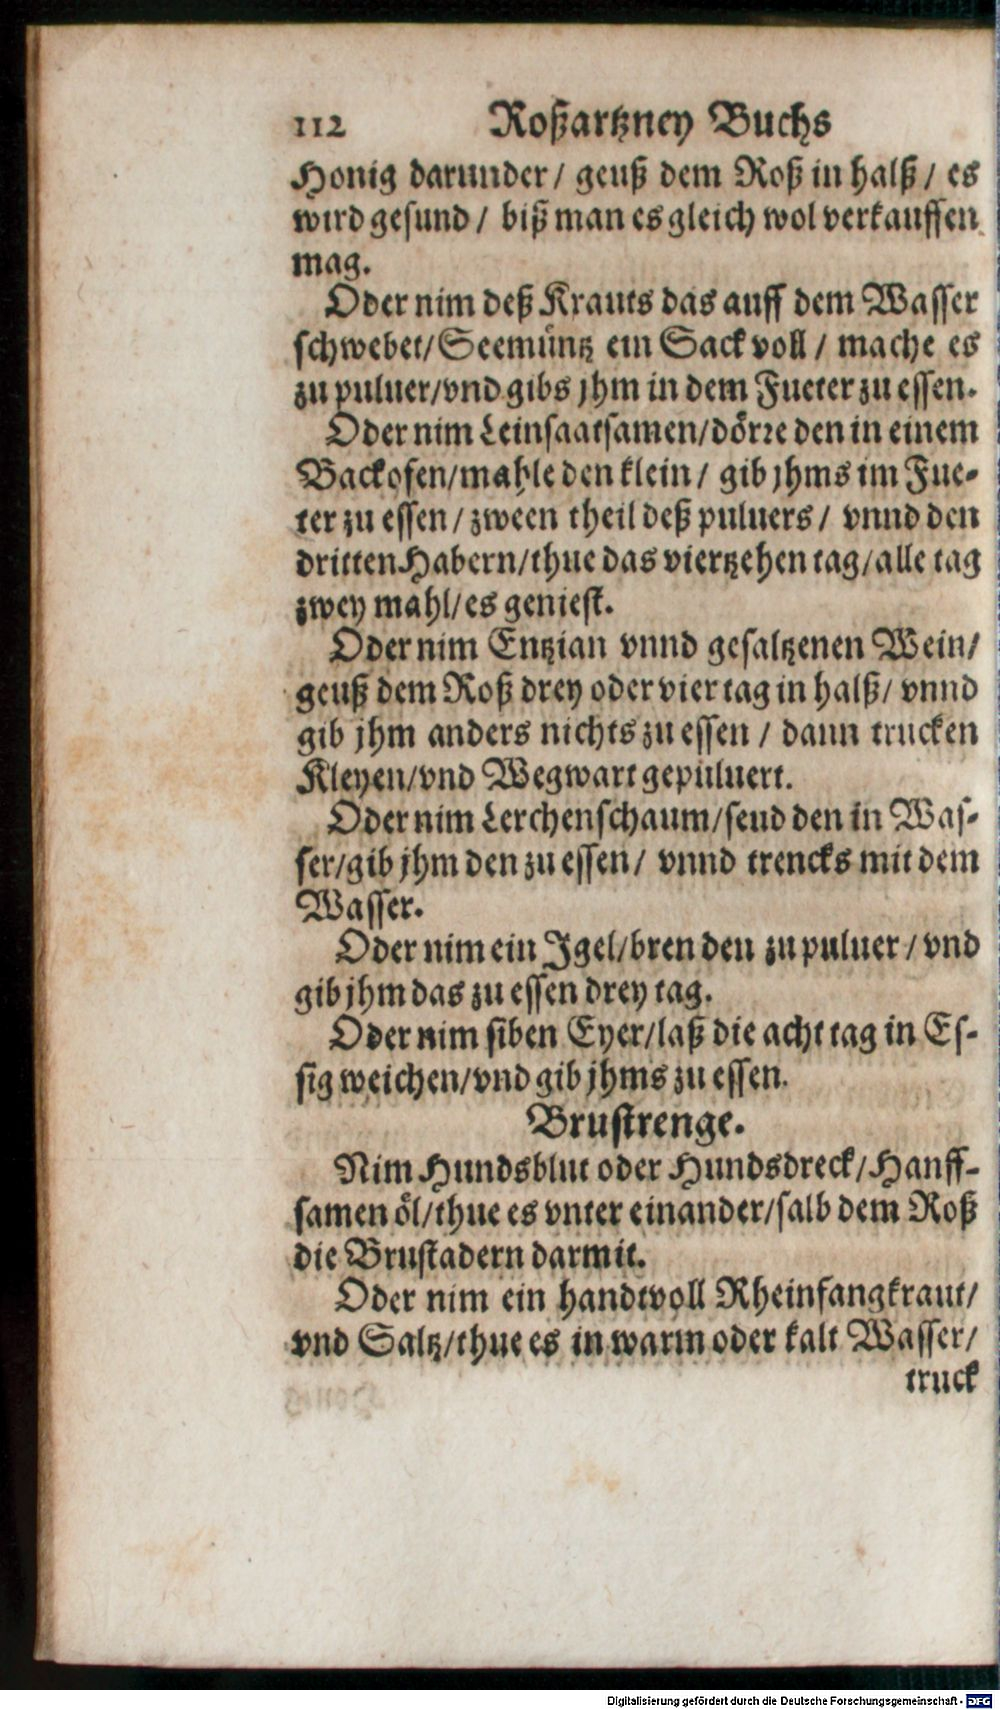 112 Roßartzney Buchs
Honig darunder / geuß dem Roß in halß / es
wird gesund / biß man es gleich wol verkauffen
mag.
Oder nim deß Krauts das auff dem Wasser
schwebet/Seemüntz ein Sack voll / mache es
zu puluer/vnd gibs jhm in dem Fueter zu essen.
Oder nim Leinsaatsamen/dörre den in einem
Backofen/mahle den klein / gib jhms im Fue-
ter zu essen / zween theil deß puluers / vnnd den
dritten Habern/thue das viertzehen tag/alle tag
zwey mahl/es geniest.
Oder nim Entzian vnnd gesaltzenen Wein/
geuß dem Roß drey oder vier tag in halß/ vnnd
gib jhm anders nichts zu essen / dann trucken
Kleyen/vnd Wegwart gepuluert.
Oder nim Lerchenschaum/seud den in Was-
ser/gib jhm den zu essen / vnnd trencks mit dem
Wasser.
Oder nim ein Igel/bren den zu puluer / vnd
gib jhm das zu essen drey tag.
Oder nim siben Eyer/laß die acht tag in Es-
sig weichen/vnd gib jhms zu essen.
Brustrenge.
Nim Hundsblut oder Hundsdreck/Hanff-
samen öl/thue es vnter einander/salb dem Roß
die Brustadern darmit.
Oder nim ein handtvoll Rheinfangkraut/
vnd Saltz/thue es in warm oder kalt Wasser/
truck
Digitalisierung gefördert durch die Deutsche Forschungsgemeinschaft - DFG